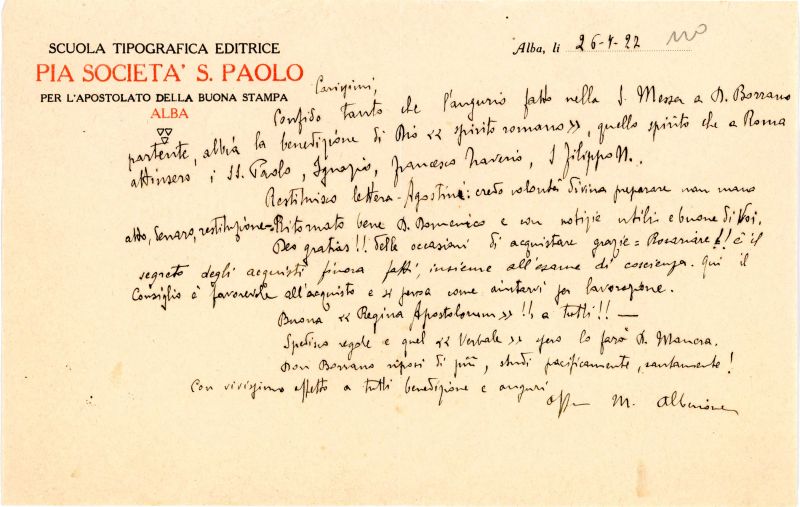 SCUOLA TIPOGRAFICA EDITRICE
PIA SOCIETA' S. PAOLO
PER L'APOSTOLATO DELLA BUONA STAMPA
ALBA
Alba, li 26-4-27 no
Carissimi,
Confido tanto che l'augurio fatto nella S. Messa a D. Borrano
partente, abbia la benedizione di Dio « spirito romano », quello spirito che a Roma
attinsero i SS. Paolo, Ignazio, Francesco Xaverio, S Filippo N.
Restituisco lettera-Agostini: credo volontà divina preparare man mano
aldo, restituzione = Ritornato bene D. Domenico e con notizie utili e buone di Voi.
Deo gratias!! delle occasioni di acquistare grazie = Rosariare!! è il
segreto degli acquisti finora fatti, insieme all'esame di coscienza. Qui il
Consiglio è favorevole all'acquisto e si pensa come aiutarvi per lavorazione.
Buona « Regina Apostolorum » !! a tutti!! —
Spedino regole e quel « Verbale » lo farò D. Manera.
Don Borrano riposi di più, studi pacificamente, santamente!
Con vivissimo affetto a tutti benedizione e auguri
aff M. Alberione